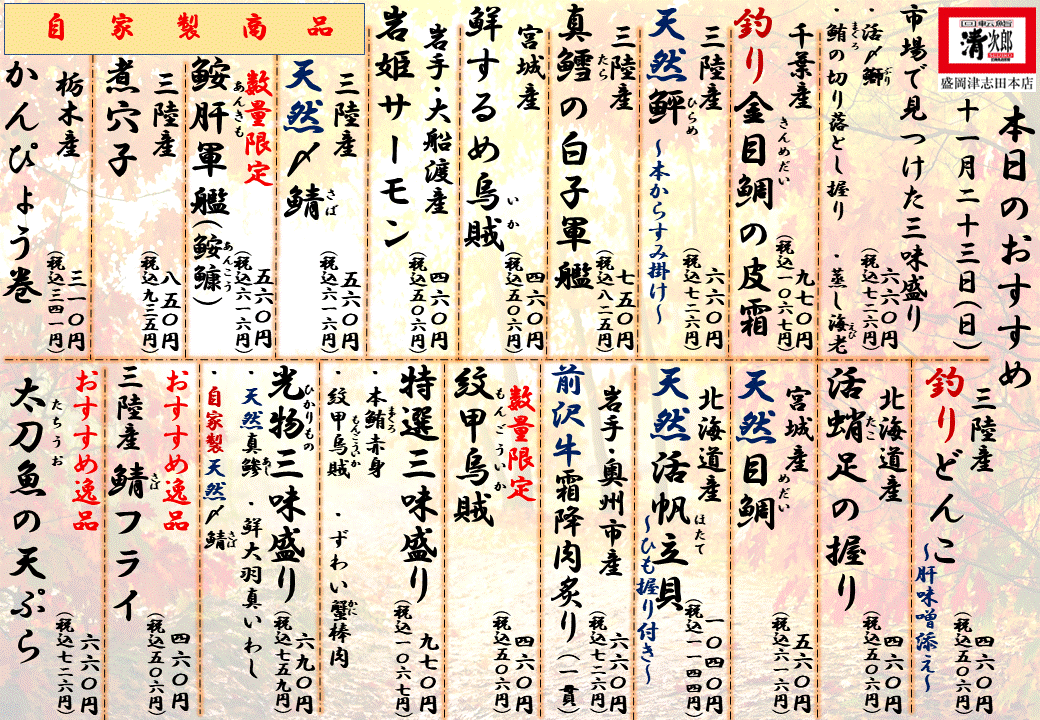 回転鮨
清次郎
盛岡津志田本店
本日のおすすめ
十一月二十三日(日)
市場で見つけた三味盛り
・活〆鰤 ・鮪の切り落とし握り ・蒸し海老
ぶり
まぐろ
えび
六六〇円
(税込七二六円)
千葉産
釣り金目鯛の皮霜
きんめだい
九七〇円
(税込一〇六七円)
三陸産
天然鮃
ひらめ
～本からすみ掛け～
六六〇円
(税込七二六円)
三陸産
真鱈の白子軍艦
たら
七五〇円
(税込八二五円)
宮城産
鮮するめ烏賊
いか
四六〇円
(税込五〇六円)
岩手・大船渡産
岩姫サーモン
四六〇円
(税込五〇六円)
自家製商品
三陸産
天然〆鯖
さば
五六〇円
(税込六一六円)
数量限定
鮟肝軍艦(鮟鱇)
あんきも
あんこう
五六〇円
(税込六一六円)
三陸産
煮穴子
八五〇円
(税込九三五円)
栃木産
かんぴょう巻
三一〇円
(税込三四一円)
三陸産
釣りどんこ
～肝味噌添え～
四六〇円
(税込五〇六円)
北海道産
活蛸足の握り
たこ
四六〇円
(税込五〇六円)
宮城産
天然目鯛
めだい
五六〇円
(税込六一六円)
北海道産
天然活帆立貝
ほたて
～ひも握り付き～
一〇四〇円
(税込一一四四円)
岩手・奥州市産
前沢牛霜降肉炙り(一貫)
六六〇円
(税込七二六円)
数量限定
紋甲烏賊
もんごういか
四六〇円
(税込五〇六円)
特選三味盛り
・本鮪赤身 ・ずわい蟹棒肉
まぐろ
かに
・紋甲烏賊
もんごういか
九七〇円
(税込一〇六七円)
光物三味盛り
ひかりもの
・天然真鯵 ・鮮大羽真いわし
あじ
・自家製天然〆鯖
さば
六九〇円
(税込七五九円)
おすすめ逸品
三陸産 鯖フライ
さば
四六〇円
(税込五〇六円)
おすすめ逸品
太刀魚の天ぷら
たちうお
六六〇円
(税込七二六円)